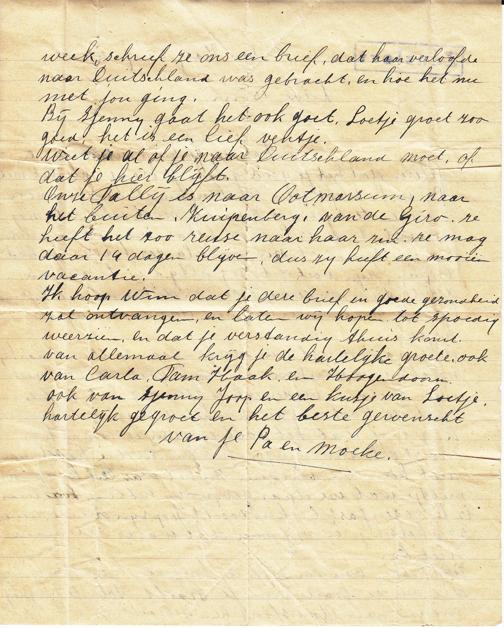 week, schreef ze ons een brief, dat haar verloofde
naar Duitschland was gebracht, en hoe het nu
met jou ging.
Bij Sjenny gaat het ook goet. Loetje groet zoo
goed, het is een lief ventje.
Weet je al of je naar Duitschland moet, of
dat je hier blijft.
Onze Tally is naar Ootmarsum, naar
het buiten, Kuipenberg, van de Giro. ze
heeft het zoo reuse naar haar zin. ze mag
daar 14 dagen blyve, dus zy heeft een mooie
vacantie.
Ik hoop Wim dat je deze brief in goede gezondheid
zal ontvangen, en laten wij hopen tot spoedig
weerzien, en dat je verstandig thuis komt.
van allemaal krijg je de hartelijke groete, ook
van Carla, Tam Haak, en Hoogendoorn.
ook van Sjenny Joop en een kusje van Loetje.
hartelijk gegroet en het beste gewenscht
van je Pa en Moeke.